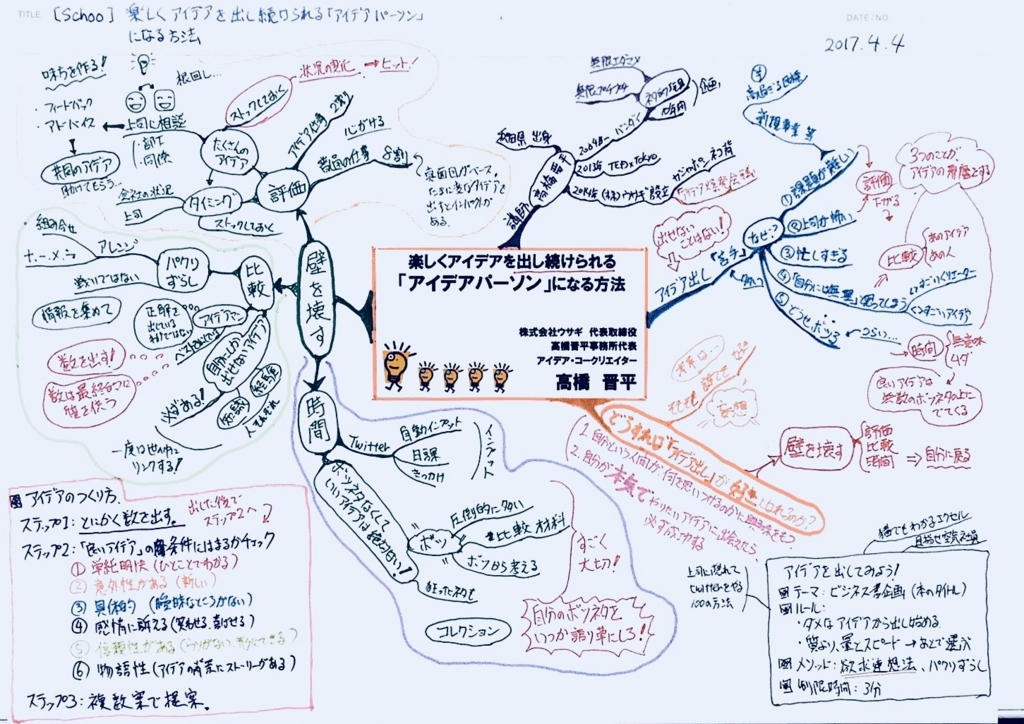 TITLE [Schoo] 楽しくアイデアを出し続けられる「アイデアパーソン」
になる方法
DATE/NO.
2017.4.4
楽しくアイデアを出し続けられる
「アイデアパーソン」になる方法
株式会社ウサギ 代表取締役
高橋晋平事務所代表
アイデア・コークリエイター
高橋 晋平
講師 高橋晋平
秋田県 出身
2004年〜バンダイ
無限エダマメ
無限プチプチ
企画
2013年 TEDxTokyo
2014年 (株)ウサギ 設立
アイデア出し「苦手」
出せないことはない!
なぜ?
①課題が難しい
新規事業 等
②上司が怖い
③忙しすぎる
④「自分には無理」と思ってしまう
⑤どうせボツる
つらい…
評価
下がる
3つのことが
アイデアの邪魔をする
比較
あの人
すごいクリエーター
すごいアイデア
時間
無意味
ムダ
良いアイデアは
無数のボツネタの上に
でてくる
どうすれば「アイデア出し」が好きになれるのか?
1. 自分という人間が「何を思いつけるのか」に興味をもつ
2. 自分が本気でやりたいアイデアに出会えたら
必ず形にする
壁を壊す
評価
比較
時間
⇒自分に戻る
壁を壊す
評価
たくさんの
アイデア
ストックしておく
状況の変化 → ヒット!
上司に相談
・部下
・同僚
根回し…
味方を作る!
・フィードバック
・アドバイス
共同のアイデア
助けてもらう…
タイミング
会社の状況
上司
ストックしておく
アイデア仕事 2割
普通の仕事 8割
心がける
真面目がベース。
たまに変なアイデアを
出すとインパクトが
ある。
比較
パクリ
ずらし
アレンジ
組み合せ
+.-.×.÷
戦いではない
情報を集めて
正解を
出しているわけではない
自分にしか
出せないアイデア
が必ずある!
知識
経験
人それぞれ
数を出す!
数は最終的に
質を伴う
一度は世の中に
リンクする!
時間
Twitter
自動インプット
日課
きっかけ
インプット
ボツネタなくして
いいアイデアは絶対ない!
ボツ
圧倒的に多い
比較 材料
ボツから考える
すごく
大切!
コレクション
自分のボツネタを
いつか語り草にしろ!
アイデアのつくり方
ステップ1:とにかく数を出す。
出した後で
ステップ2へ
ステップ2:「良いアイデア」の6条件にはまるかチェック
① 単純明快 (ひとことでわかる)
② 意外性がある (新しい)
③ 具体的 (曖昧なところがない)
④ 感情に訴える (笑わせる、喜ばせる)
⑥ 物語性 (アイデアの背景にストーリーがある)
ステップ3:複数案で提案。
猫でもわかるエクセル
上司に隠れて
twitterをやる
100の方法
アイデアを出してみよう!
テーマ:ビジネス書企画 (本のタイトル)
ルール:
・ダメなアイデアから出し始める
・質より、量とスピード → あとで選ぶ
メソッド:欲求連想法、パクリずらし
制限時間:3分